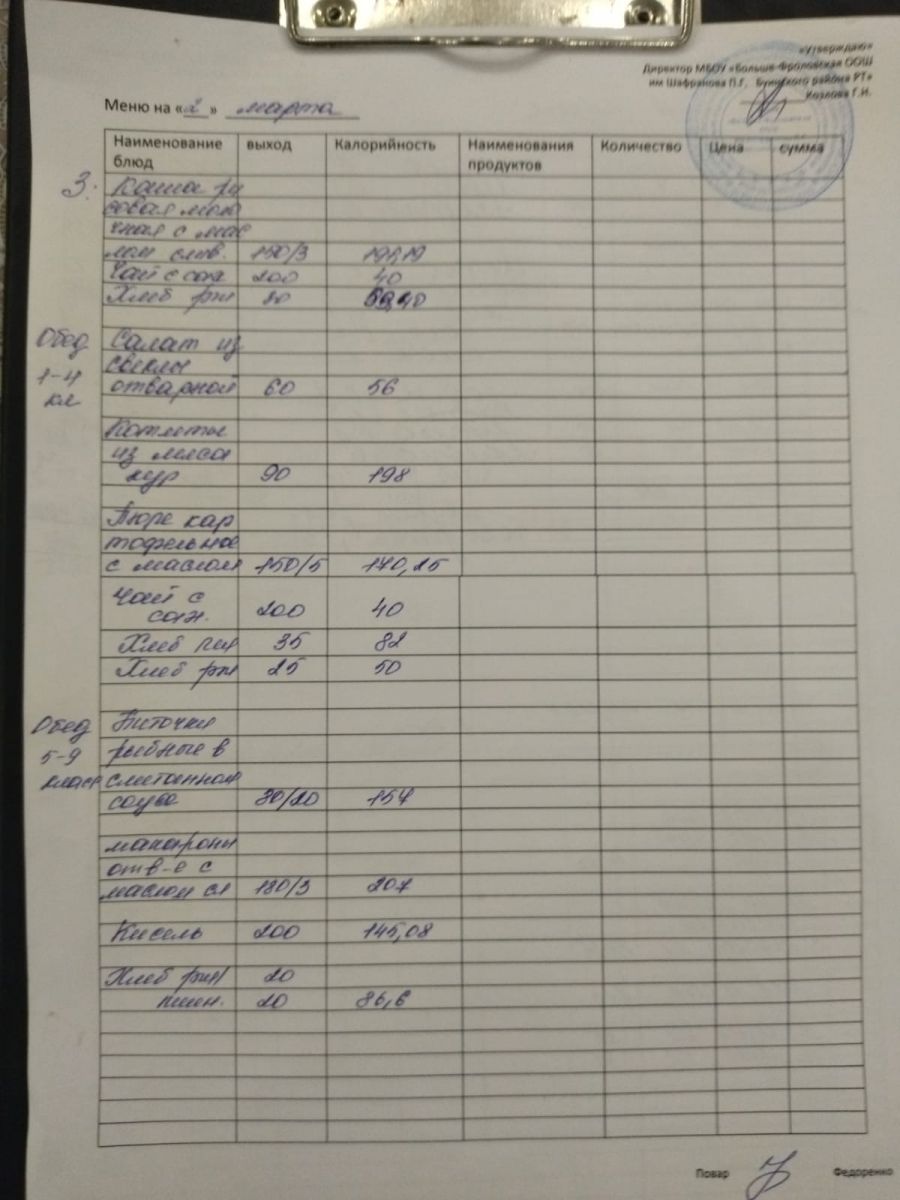 «Утверждаю»
Директор МБОУ «Больше-Фроловская ООШ
им Шафранова П.Г, Буинского района РТ»
Козлова Г.И.
Меню на «2» марта
Наименование блюд выход Калорийность Наименования продуктов Количество Цена сумма
3. Каша ри
совая моло
чная с мас
лом слив. 150/3 191,19
Чай с сах 200 40
Хлеб рж
Обед Салат из
1-4 свеклы
кл отварной 60 56
Котлеты
из мяса
кур 90 198
Пюре кар
тофельное
с маслом 150/5 140,25
Чай с
сах. 200 40
Хлеб пш 35 82
Хлеб рж 25 50
Обед Биточки
5-9 рыбные в
класс сметанном
соусе 80/20 154
макароны
отв-е с
маслом сл 180/3 207
Кисель 200 145,08
Хлеб рж/ 20
пшен. 20 86,6
Повар Федоренко